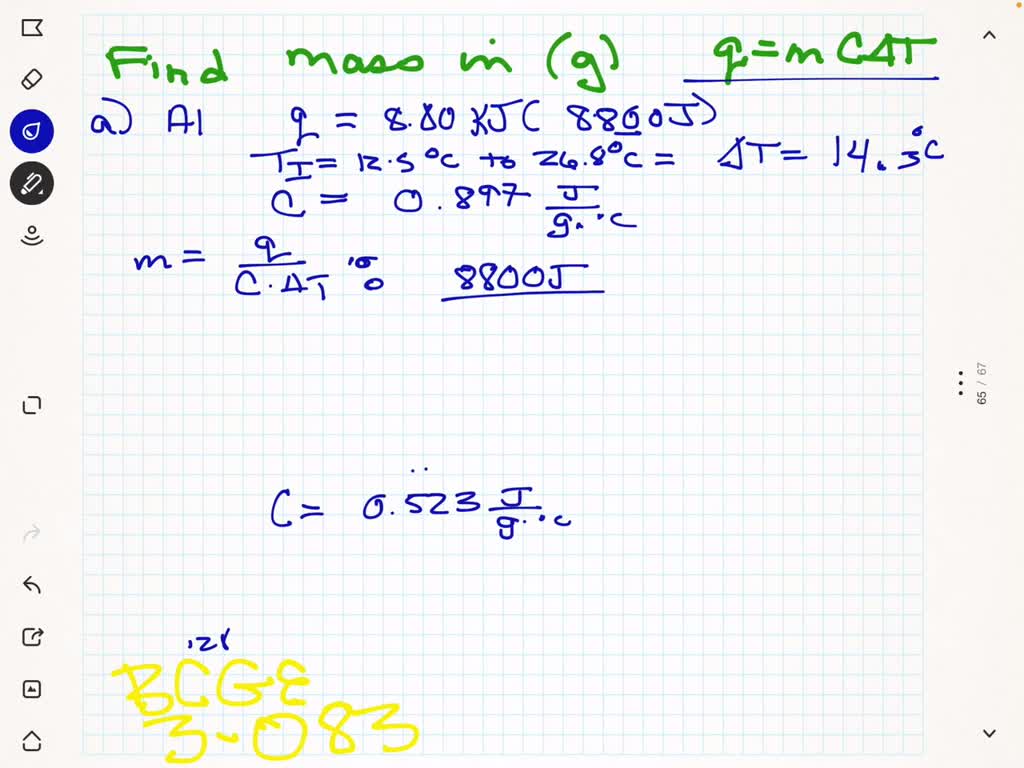 Find mass in (g) q = m C ΔT
a) Al q = 8.80 KJ ( 8800J)
TI = 12.5 °C to 26.8°C = ΔT = 14.3°C
C = 0.897 J/g·°C
m = q/C·ΔT 8800J
C = 0.523 J/g·°C
BCGE
3-083
65 / 67